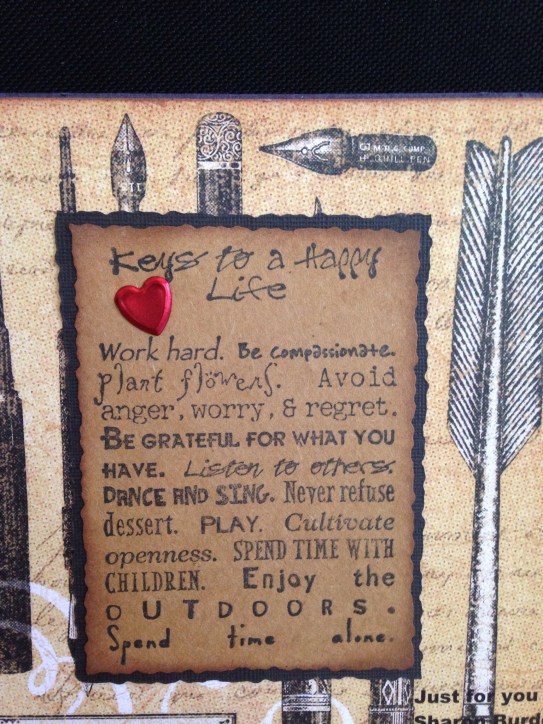 Keys to a Happy
Life
Work hard. Be compassionate.
plant flowers. Avoid
anger, worry, & regret.
BE GRATEFUL FOR WHAT YOU
HAVE. Listen to others.
DANCE AND SING. Never refuse
dessert. PLAY. Cultivate
openness. SPEND TIME WITH
CHILDREN. Enjoy the
OUTDOORS.
Spend time alone.
Just for you